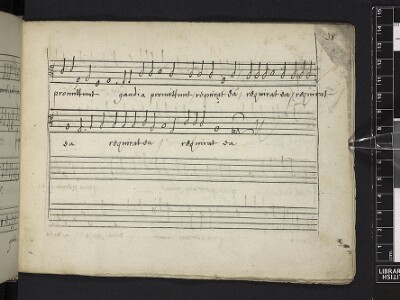 38
promittunt gaudia promittunt requirat ea / requirat ea / requirat
ea requirat ea / requirat ea